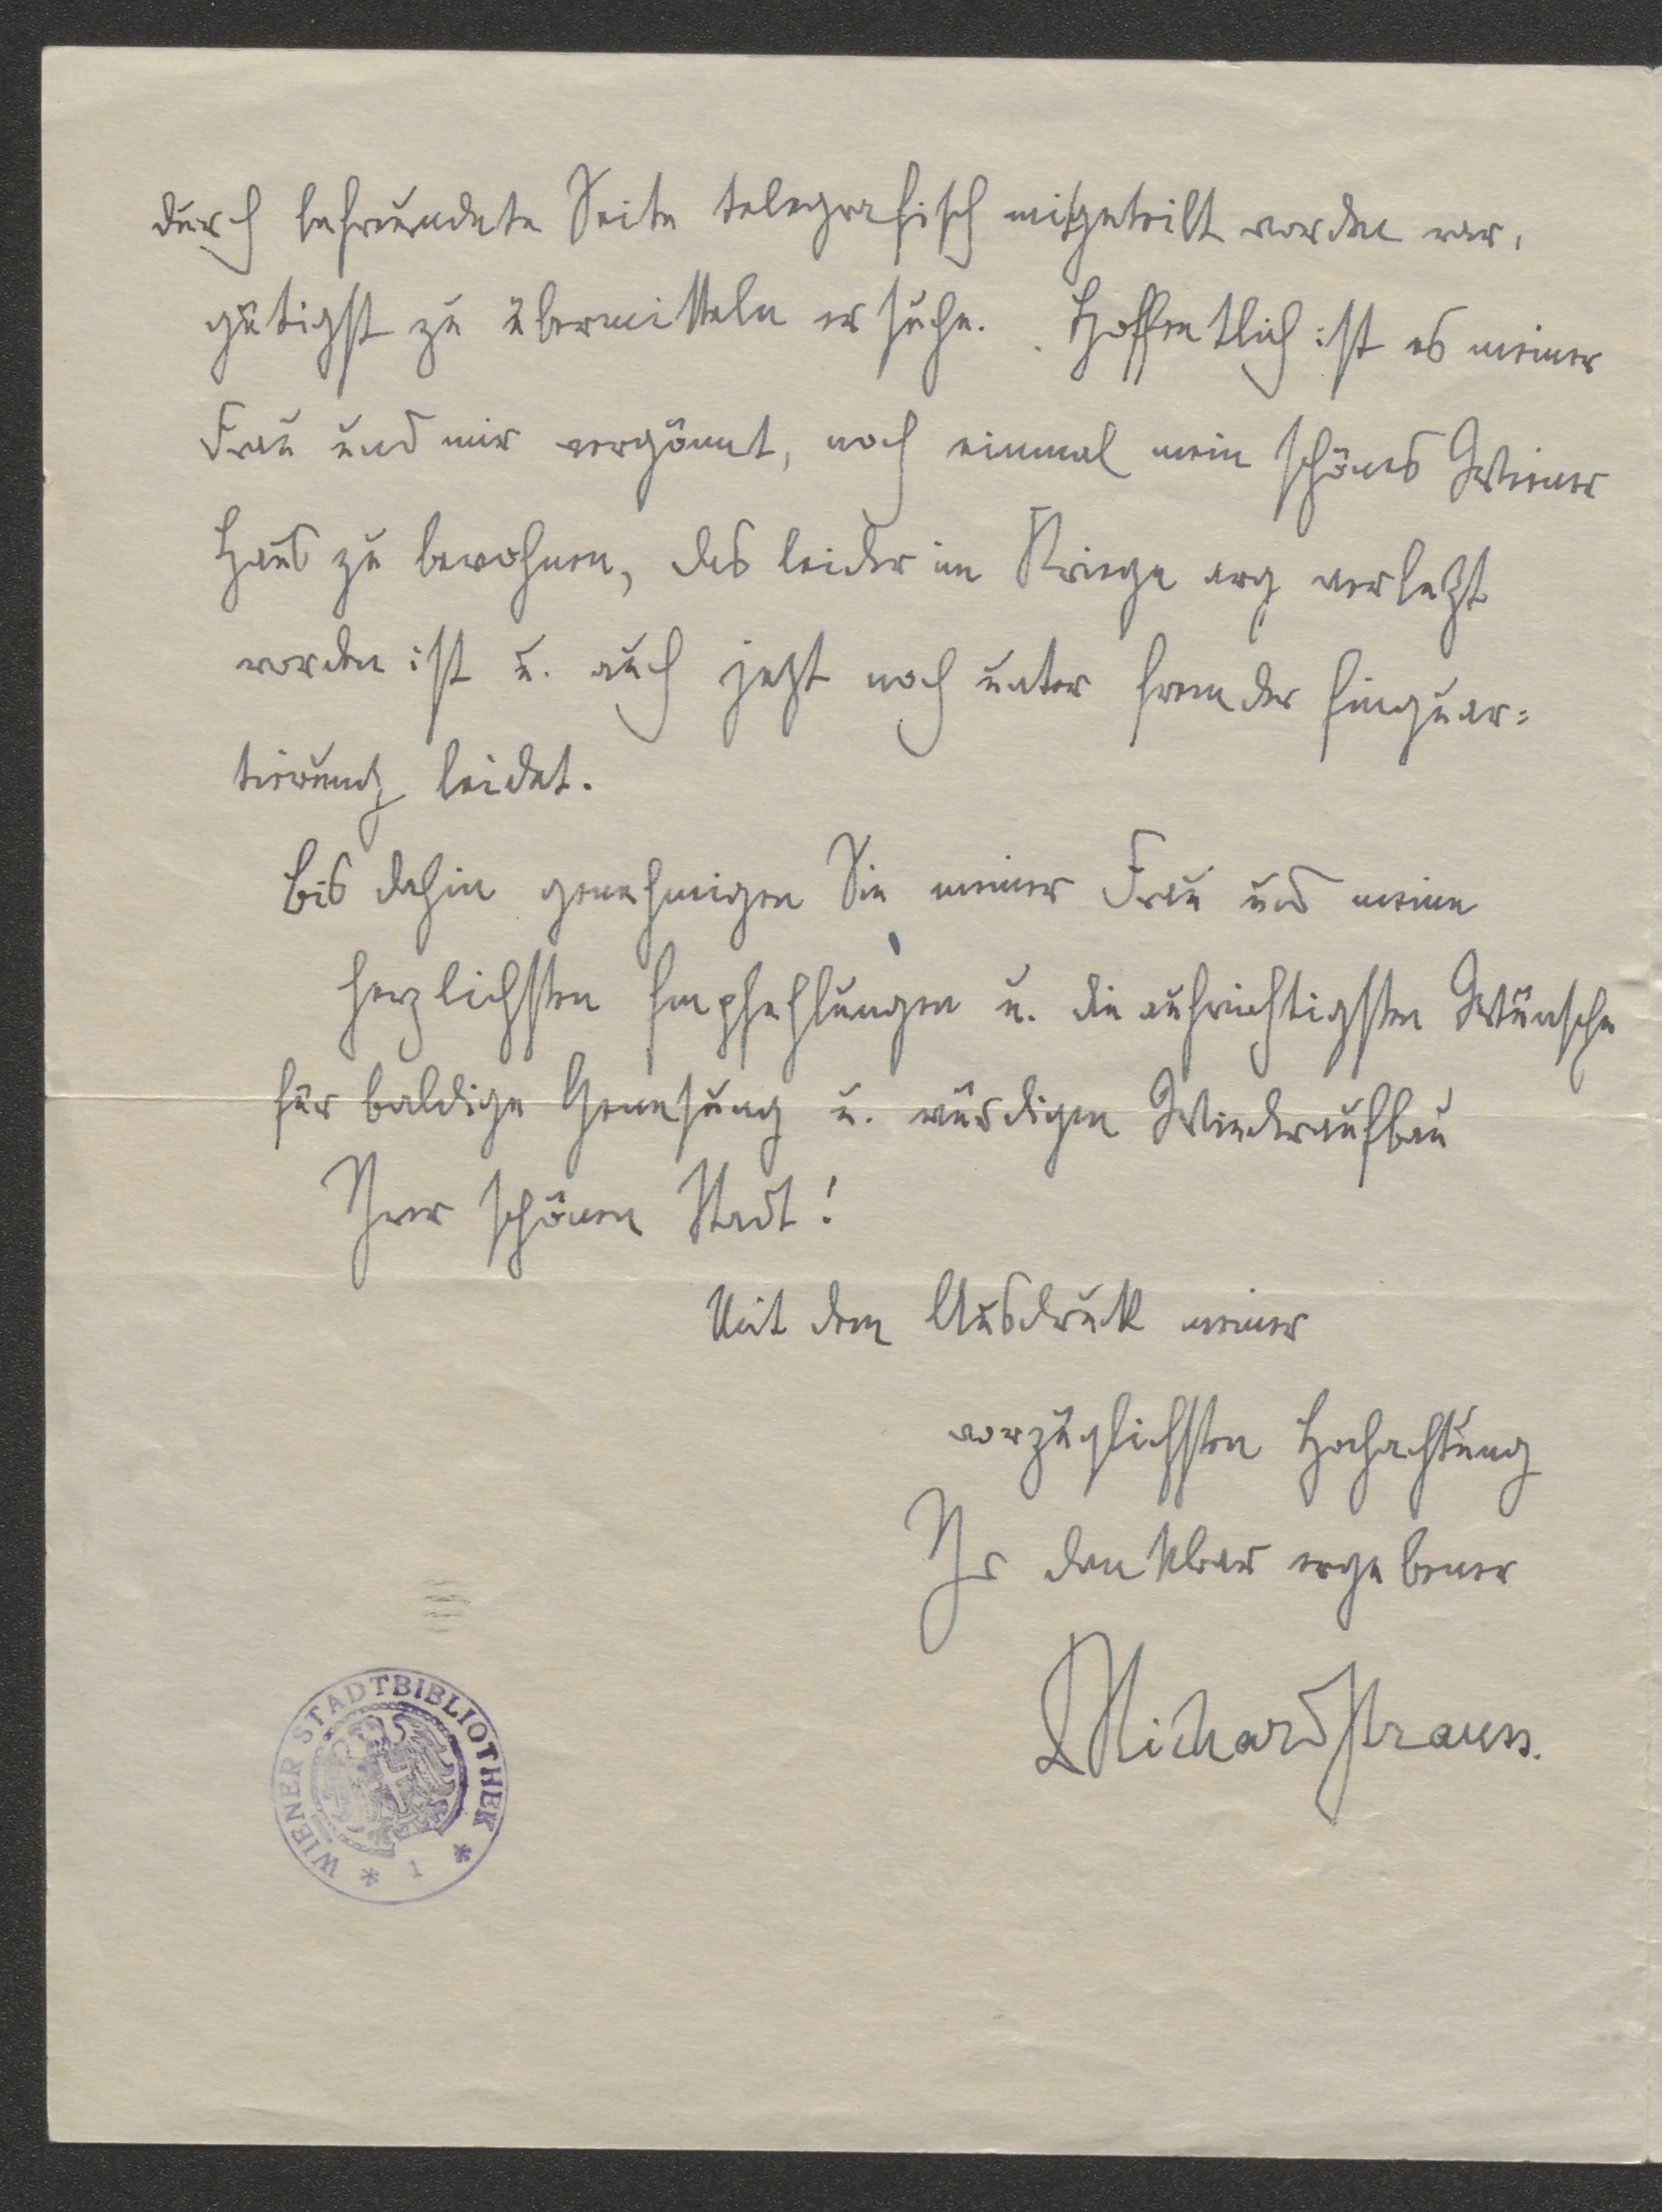 durch befreundete Seite telegrafisch mitgeteilt worden war,
gütigst zu übermitteln ersuche. Hoffentlich ist es meiner
Frau und mir vergönnt, noch einmal mein schönes Wiener
Haus zu bewohnen, das leider im Kriege arg verletzt
worden ist u. auch jetzt noch unter fremder Einquar=
tierung leidet.
Bis dahin genehmigen Sie meiner Frau und meine
herzlichsten Empfehlungen u. die aufrichtigsten Wünsche
für baldige Genesung u. würdigen Wiederaufbau
Ihrer schönen Stadt!
Mit dem Ausdruck meiner
vorzüglichsten Hochachtung
Ihr dankbar ergebener
DRichard Strauss.
WIENER STADTBIBLIOTHEK
* 1 *